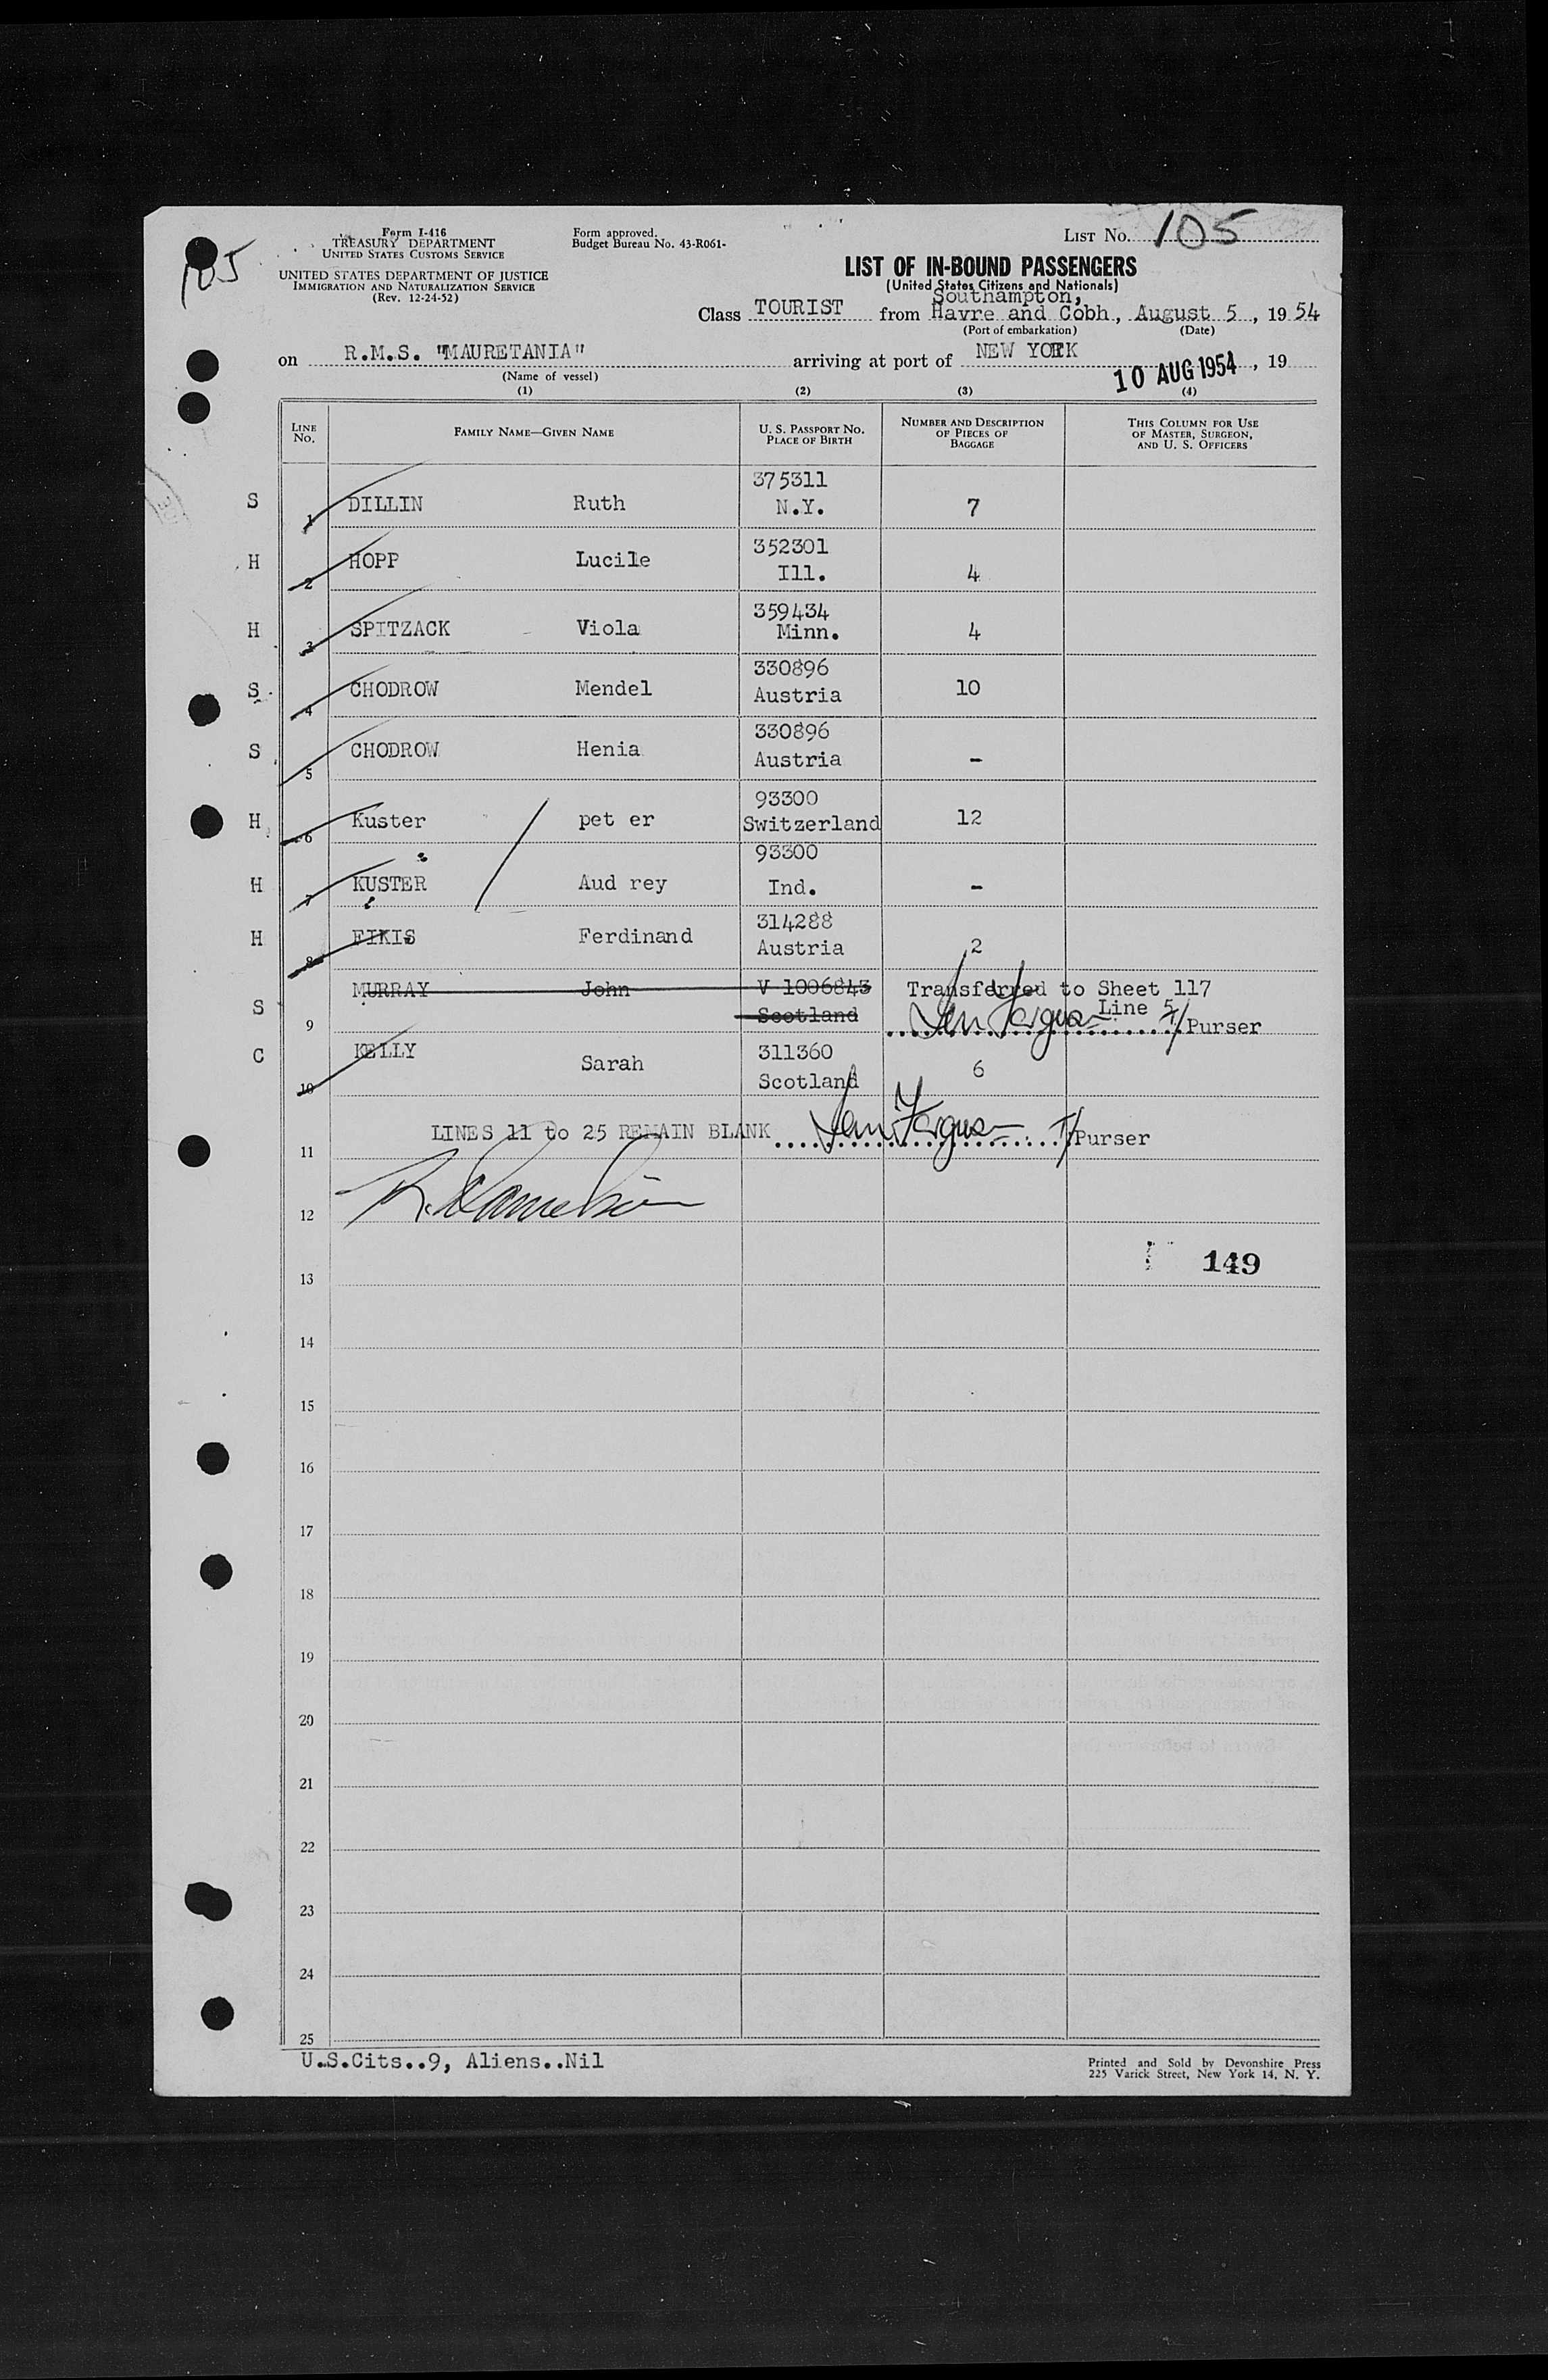 Form I-416
TREASURY DEPARTMENT
UNITED STATES CUSTOMS SERVICE
UNITED STATES DEPARTMENT OF JUSTICE
IMMIGRATION AND NATURALIZATION SERVICE
(Rev. 12-24-52)
Form approved.
Budget Bureau No. 43-R061-
LIST No. 105
105
LIST OF IN-BOUND PASSENGERS
(United States Citizens and Nationals)
Southampton,
Class TOURIST from Havre and Cobh, August 5, 19 54
(Port of embarkation) (Date)
on R.M.S. "MAURETANIA" arriving at port of NEW YORK 10 AUG 1954, 19
(Name of vessel)
(1) (2) (3) (4)
LINE No. FAMILY NAME—GIVEN NAME U. S. PASSPORT NO. PLACE OF BIRTH NUMBER AND DESCRIPTION OF PIECES OF BAGGAGE THIS COLUMN FOR USE OF MASTER, SURGEON, AND U. S. OFFICERS
S 1 DILLIN Ruth 375311 N.Y. 7
H 2 HOPP Lucile 352301 Ill. 4
H 3 SPITZACK Viola 359434 Minn. 4
S 4 CHODROW Mendel 330896 Austria 10
S 5 CHODROW Henia 330896 Austria -
H 6 Kuster pet er 93300 Switzerland 12
H 7 KUSTER Aud rey 93300 Ind. -
H 8 FIKIS Ferdinand 314288 Austria 2
S 9 MURRAY John V 1006843 Scotland Transferred to Sheet 117 Line 5 Purser
C 10 KELLY Sarah 311360 Scotland 6
11 LINES 11 to 25 REMAIN BLANK Purser
12
149
13
14
15
16
17
18
19
20
21
22
23
24
25
U.S.Cits..9, Aliens..Nil
Printed and Sold by Devonshire Press
225 Varick Street, New York 14, N. Y.